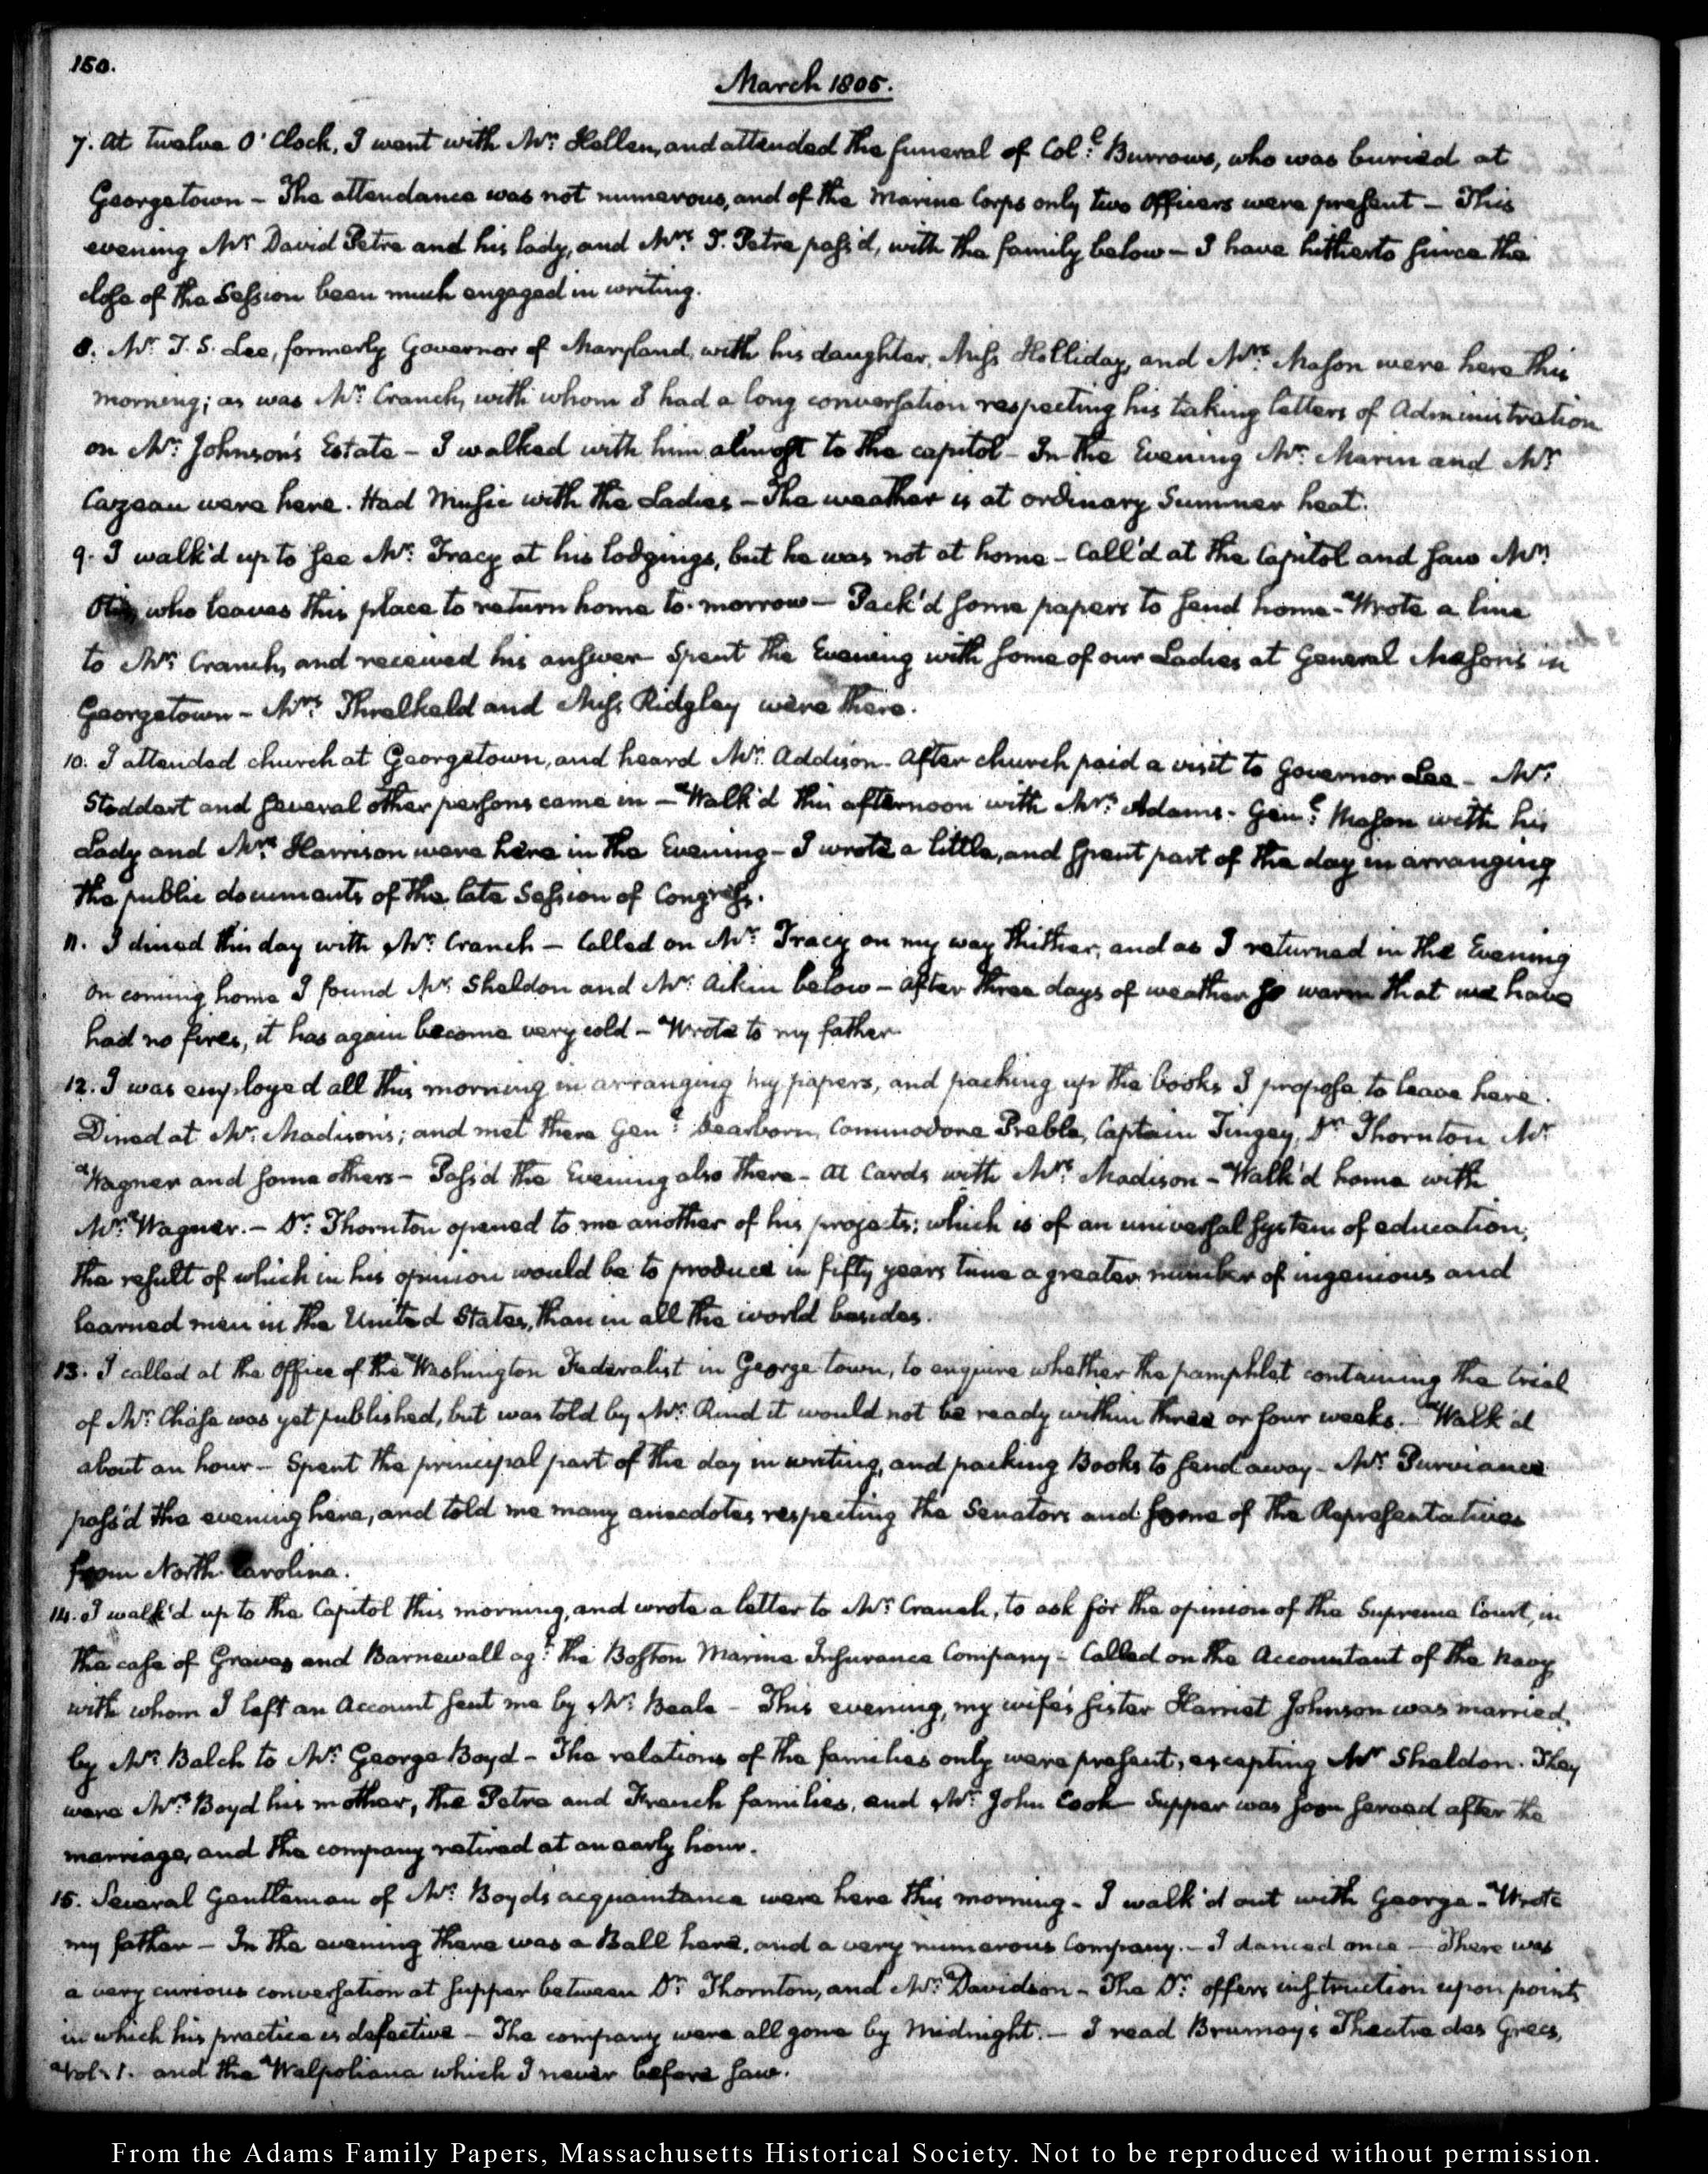 150.
March 1805.
7. At twelve O'Clock, I went with Mr: Hellen, and attended the funeral of Col:l Burrows, who was buried at
Georgetown – The attendance was not numerous, and of the Marine Corps only two Officers were present – This
evening Mr David Petre and his lady, and Mrs: J. Petre pass'd, with the family below – I have hitherto since the
close of the Session been much engaged in writing.
8. Mr: T. S. Lee, formerly Governor of Maryland, with his daughter, Miss Holliday, and Mrs: Mason were here this
morning; as was Mr: Cranch, with whom I had a long conversation respecting his taking letters of Administration
on Mr: Johnson's Estate – I walked with him almost to the capitol – In the Evening Mr: Marin and Mr
Cazeau were here. Had Music with the Ladies – The weather is at ordinary Summer heat.
9. I walk'd up to see Mr: Tracy at his lodgings, but he was not at home – Call'd at the Capitol and saw Mr:
Otis, who leaves this place to return home to-morrow – Pack'd some papers to send home – Wrote a line
to Mr: Cranch, and received his answer – Spent the Evening with some of our Ladies at General Mason's in
Georgetown – Mrs: Threlkeld and Miss Ridgley were there.
10. I attended church at Georgetown, and heard Mr: Addison – After church paid a visit to Governor Lee – Mr:
Stoddert and several other persons came in – Walk'd this afternoon with Mrs: Adams – Gen:l Mason with his
Lady and Mrs: Harrison were here in the Evening – I wrote a little, and spent part of the day in arranging
the public documents of the late Session of Congress.
11. I dined this day with Mr: Cranch – Called on Mr: Tracy on my way thither, and as I returned in the Evening
On coming home I found Mr: Sheldon and Mr: Aikin below – After three days of weather so warm that we have
had no fires, it has again become very cold – Wrote to my father
12. I was employed all this morning in arranging my papers, and packing up the books I propose to leave here.
Dined at Mr: Madison's; and met there Gen:l Dearborn, Commodore Preble, Captain Tingey, Dr: Thornton, Mr:
Wagner and some others – Pass'd the Evening also there – At Cards with Mrs: Madison – Walk'd home with
Mr: Wagner. – Dr: Thornton opened to me another of his projects: which is of an universal system of education;
the result of which in his opinion would be to produce in fifty years time a greater number of ingenious and
learned men in the United States, than in all the world besides.
13. I called at the Office of the Washington Federalist in George town, to enquire whether the pamphlet containing the trial
of Mr: Chase was yet published, but was told by Mr: Rind it would not be ready within three or four weeks. – Walk'd
about an hour – Spent the principal part of the day in writing, and packing Books to send away – Mr: Purviance
pass'd the evening here, and told me many anecdotes respecting the Senators and some of the Representatives
from North Carolina.
14. I walk'd up to the Capitol this morning, and wrote a letter to Mr: Cranch, to ask for the opinion of the Supreme Court, in
the case of Graves and Barnewall ag:t the Boston Marine Insurance Company – Called on the Accountant of the Navy
with whom I left an Account sent me by Mr: Beale – This evening, my wife's sister Harriet Johnson was married,
by Mr: Balch to Mr: George Boyd – The relations of the families only were present, excepting Mr Sheldon. They
were Mrs: Boyd his mother, the Petre and French families, and Mr: John Cook – Supper was soon served after the
marriage, and the company retired at an early hour.
15. Several Gentlemen of Mr: Boyds acquaintance were here this morning – I walk'd out with George – Wrote
my father – In the evening there was a Ball here, and a very numerous Company. – I danced once – There was
a very curious conversation at supper between Dr: Thornton, and Mr: Davidson – The Dr: offers instruction upon points
in which his practice is defective – The company were all gone by Midnight. – I read Brumoy's Theatre des Grecs,
Vol. 1. and the Walpoliana which I never before saw.
From the Adams Family Papers, Massachusetts Historical Society. Not to be reproduced without permission.